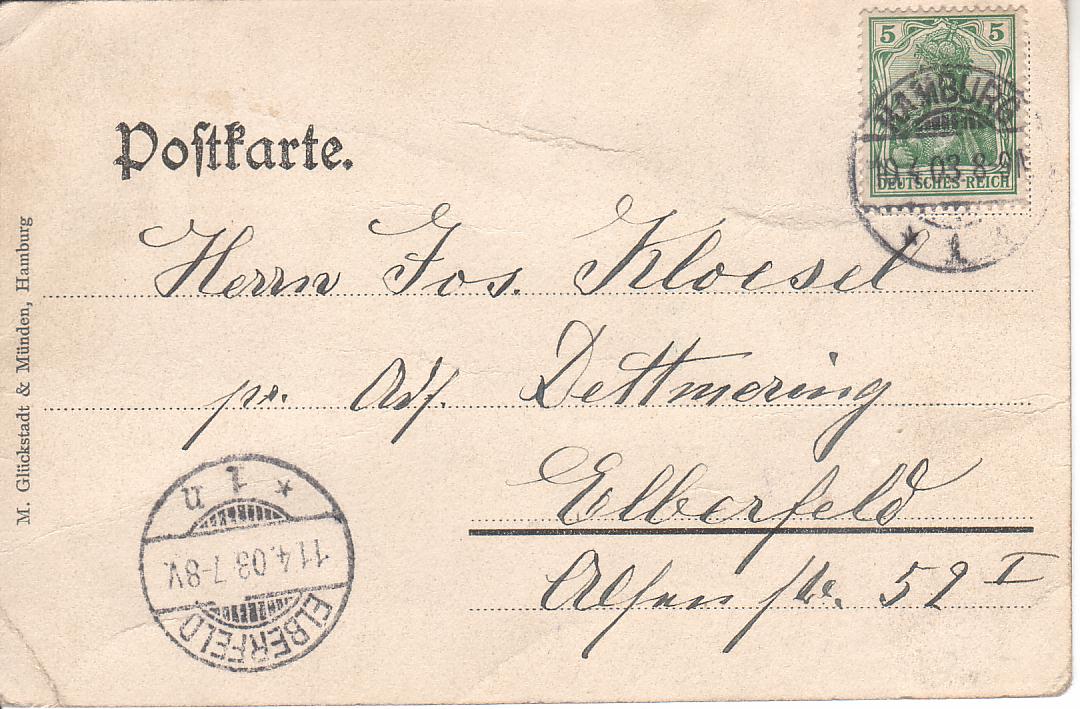 5 5
DEUTSCHES REICH
HAMBURG
10.4.03.8-9N
* 1
Postkarte.
Herrn Jos. Kloesel
pr. Adr. Dettmering
Elberfeld
52 I
M. Glückstadt & Münden, Hamburg
* 1 n
11.4.03.7-8V.
ELBERFELD